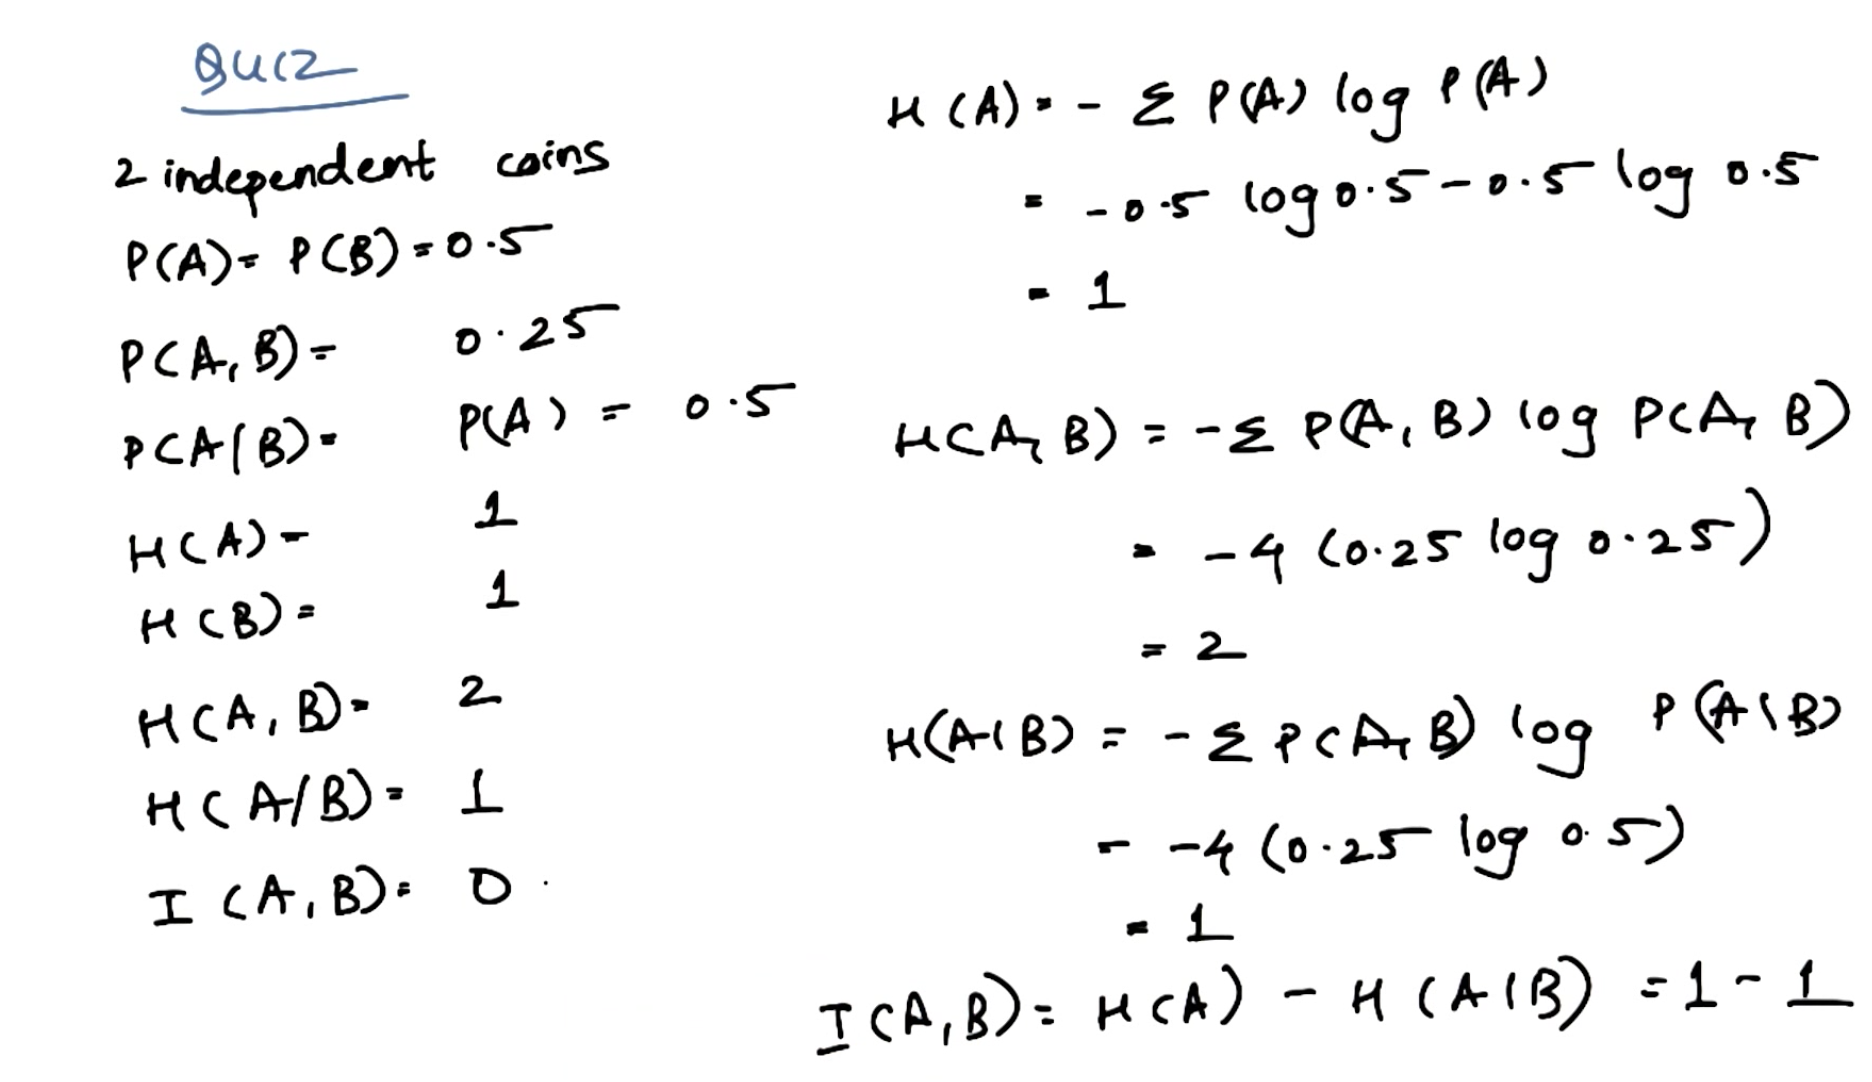 QUIZ
2 independent coins
P(A) = P(B) = 0.5
P(A, B) = 0.25
P(A|B) = P(A) = 0.5
H(A) = 1
H(B) = 1
H(A, B) = 2
H(A/B) = 1
I(A, B) = 0
H(A) = - Σ P(A) log P(A)
= -0.5 log 0.5 - 0.5 log 0.5
= 1
H(A, B) = -Σ P(A, B) log P(A, B)
= -4 (0.25 log 0.25)
= 2
H(A|B) = -Σ P(A, B) log P(A|B)
= -4 (0.25 log 0.5)
= 1
I(A, B) = H(A) - H(A|B) = 1 - 1